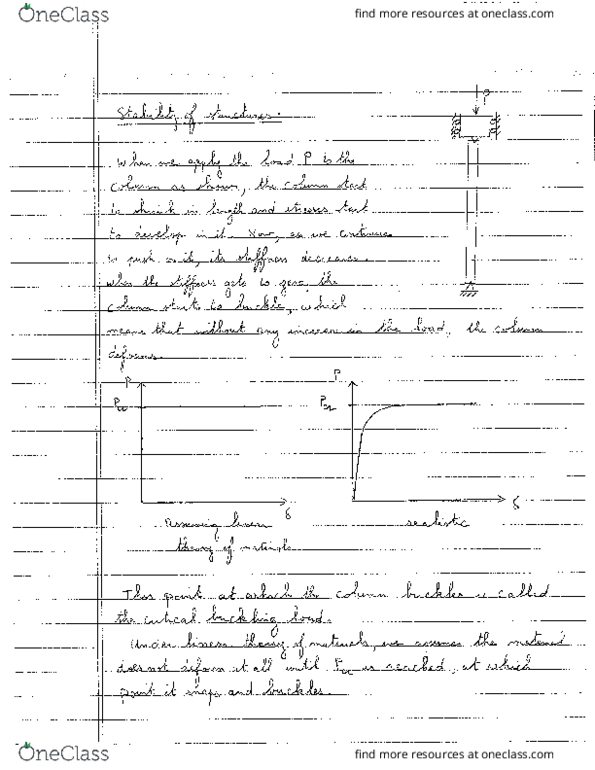 OneClass
find more resources at oneclass.com
Stability of structures.
P
When we apply the load P is the
column as shown, the column start
to shrink in length and stresses start
to develop in it. Now, as we continue
to push on it, its stiffness decreases.
when the stiffness gets to zero the
column starts to buckle, which
means that without any increase in the load, the column
deforms.
P
P
Pcr
Pcr
δ
δ
Assuming linear
realistic
theory of materials
This point at which the column buckles is called
the critical buckling load.
Under linear theory of materials, we assume the material
does not deform at all until Pcr is reached, at which
point it snaps and buckles.
OneClass
find more resources at oneclass.com